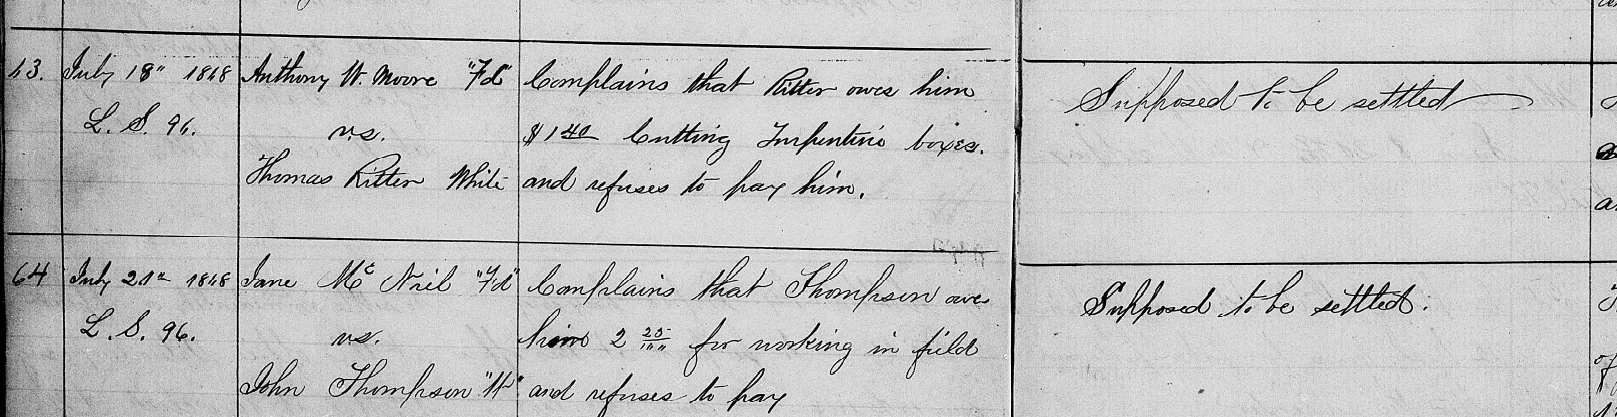 63. July 18" 1868 Anthony W. Moore "Fd" Complains that Ritter owes him Supposed to be settled
L. S. 96. vs. $1 40 Cutting Turpentine boxes.
Thomas Ritter White and refuses to pay him.
64 July 21st 1868 Jane Mc Neil "Fd" Complains that Thompson owes Supposed to be settled.
L. S. 96. vs. him 2 25/100 for working in field
John Thompson "W" and refuses to pay